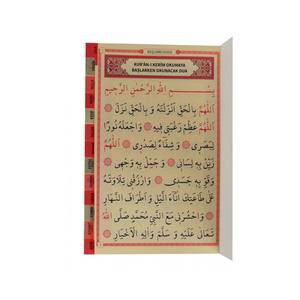 KUR'ÂN-I KERÎM OKUMAYA
BAŞLARKEN OKUNACAK DUA
بِسْمِ اللّٰهِ الرَّحْمٰنِ الرَّحِيمِ
اَللّٰهُمَّ بِالْحَقِّ اَنْزَلْتَهُ وَ بِالْحَقِّ نَزَلَ
اَللّٰهُمَّ عَظِّمْ رَغْبَتِى فِيهِ ۞ وَاجْعَلْهُ نُورًا
لِبَصَرِى ۞ وَ شِفَاءً لِصَدْرِى ۞ اَللّٰهُمَّ
زَيِّنْ بِهِ لِسَانِى ۞ وَ جَمِّلْ بِهِ وَجْهِى
وَ قَوِّ بِهِ جَسَدِى ۞ وَارْزُقْنِى تِلَاوَتَهُ
عَلٰى طَاعَتِكَ اٰنَاءَ الَّيْلِ وَ اَطْرَافَ النَّهَارِ
۞ وَاحْشُرْنِى مَعَ النَّبِىِّ مُحَمَّدٍ صَلَّى اللّٰهُ
تَعَالٰى عَلَيْهِ وَ سَلَّمَ وَاٰلِهِ الْاَخْيَارِ